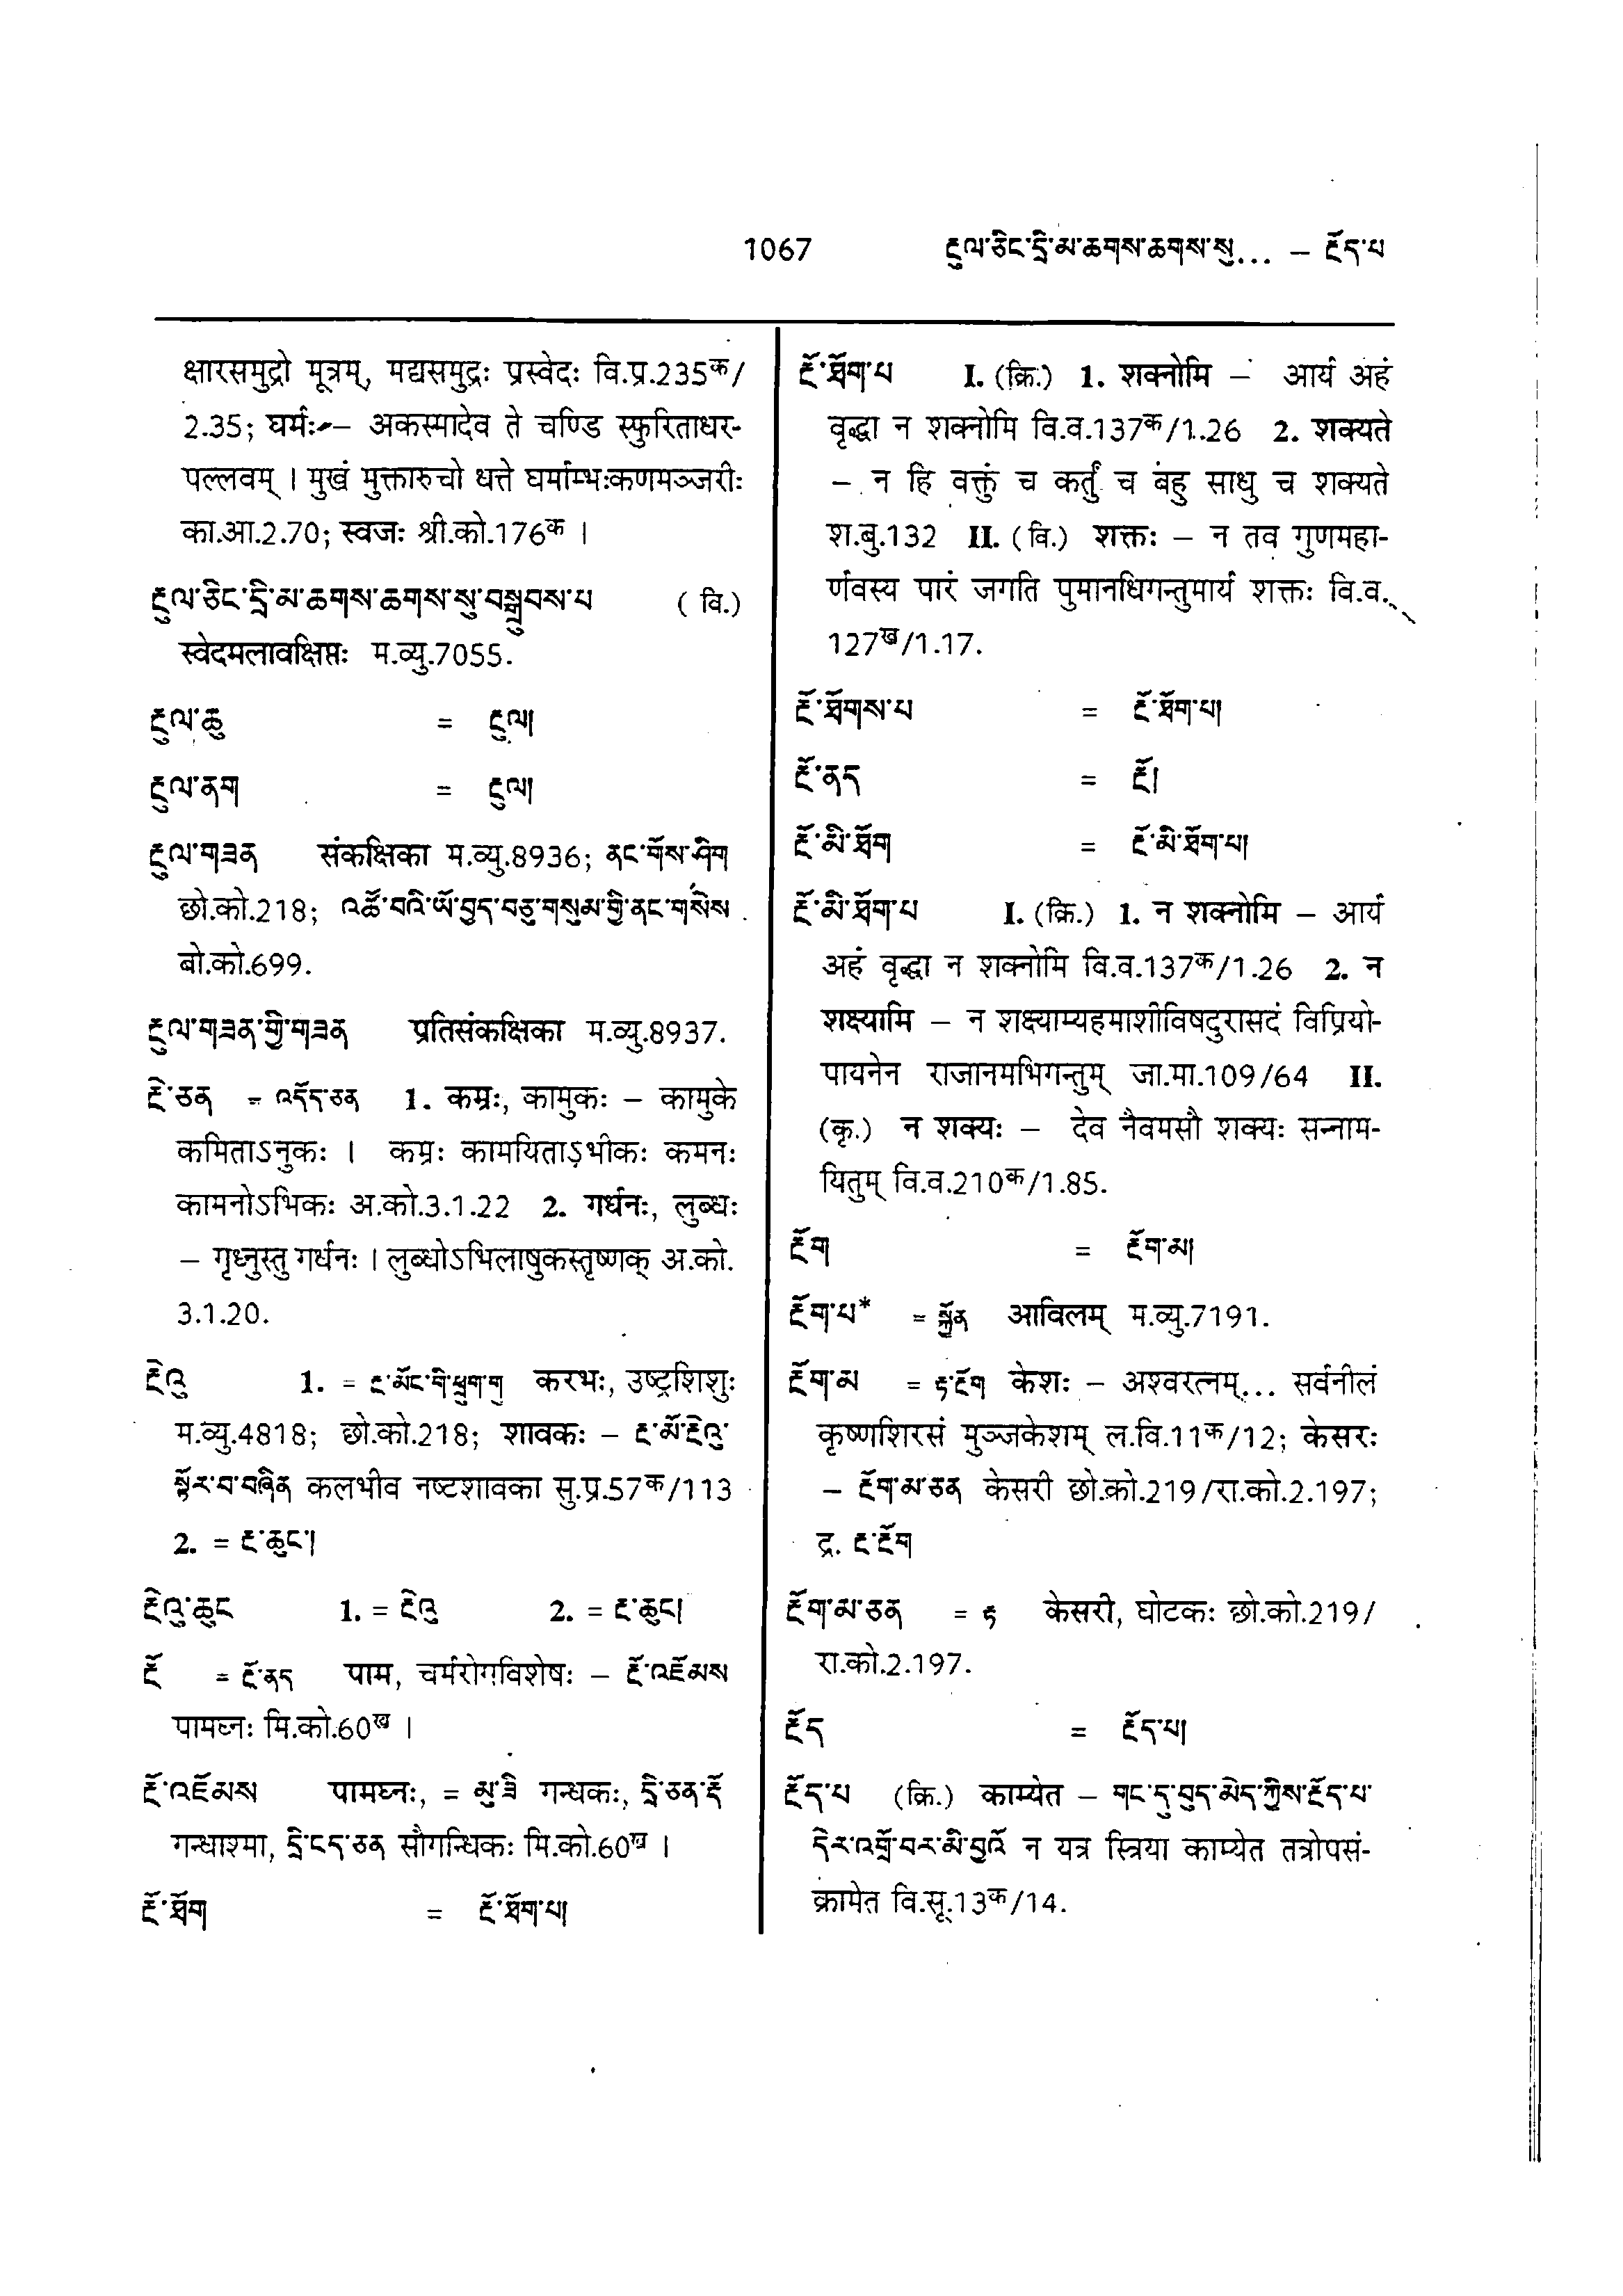 1067 རྔུལ་ཅིང་དྲི་མ་ཆགས་ཆགས་སུ... – རྔོད་པ
क्षारसमुद्रो मूत्रम्, मद्यसमुद्रः प्रस्वेदः वि.प्र.235क/
2.35; घर्मः – अकस्मादेव ते चण्डि स्फुरिताधर-
पल्लवम् । मुखं मुक्तारुचो धत्ते घर्माम्भःकणमञ्जरीः
का.आ.2.70; स्वजः श्री.को.176क ।
རྔུལ་ཅིང་དྲི་མ་ཆགས་ཆགས་སུ་བསྒྲུབས་པ (वि.)
स्वेदमलावक्षिप्तः म.व्यु.7055.
རྔུལ་ཆུ = རྔུལ།
རྔུལ་ནག = རྔུལ།
རྔུལ་གཟན संकक्षिका म.व्यु.8936; ནང་གོས་ཤིག
छो.को.218; འཚོ་བའི་ཡོ་བྱད་བཅུ་གསུམ་གྱི་ནང་གསེས
बो.को.699.
རྔུལ་གཟན་གྱི་གཟན प्रतिसंकक्षिका म.व्यु.8937.
རྔེ་ཅན = འདོད་ཅན 1. कम्रः, कामुकः – कामुके
कमिताऽनुकः । कम्रः कामयिताऽभीकः कमनः
कामनोऽभिकः अ.को.3.1.22 2. गर्धनः, लुब्धः
– गृध्नुस्तु गर्धनः । लुब्धोऽभिलाषुकस्तृष्णक् अ.को.
3.1.20.
རྔེའུ 1. = རྔ་མོང་གི་ཕྲུག་གུ करभः, उष्ट्रशिशुः
म.व्यु.4818; छो.को.218; शावकः – རྔ་མོ་རྔེའུ་
སྟོར་བ་བཞིན कलभीव नष्टशावका सु.प्र.57क/113
2. = རྔ་ཆུང་།
རྔེའུ་ཆུང 1. = རྔེའུ 2. = རྔ་ཆུང།
རྔོ = རྔོ་ནད पाम, चर्मरोगविशेषः – རྔོ་འཇོམས
पामघ्नः मि.को.60ख ।
རྔོ་འཇོམས पामघ्नः, = མུ་ཟི गन्धकः, དྲི་ཅན་རྡོ
गन्धाश्मा, དྲི་ངད་ཅན सौगन्धिकः मि.को.60ख ।
རྔོ་ཐོག = རྔོ་ཐོག་པ།
རྔོ་ཐོག་པ I. (क्रि.) 1. शक्नोमि – आर्य अहं
वृद्धा न शक्नोमि वि.व.137क/1.26 2. शक्यते
– न हि वक्तुं च कर्तुं च बहु साधु च शक्यते
श.बु.132 II. (वि.) शक्तः – न तव गुणमहा-
र्णवस्य पारं जगति पुमानधिगन्तुमार्य शक्तः वि.व.
127ख/1.17.
རྔོ་ཐོགས་པ = རྔོ་ཐོག་པ།
རྔོ་ནད = རྔོ།
རྔོ་མི་ཐོག = རྔོ་མི་ཐོག་པ།
རྔོ་མི་ཐོག་པ I. (क्रि.) 1. न शक्नोमि – आर्य
अहं वृद्धा न शक्नोमि वि.व.137क/1.26 2. न
शक्ष्यामि – न शक्ष्याम्यहमाशीविषदुरासदं विप्रियो-
पायनेन राजानमभिगन्तुम् जा.मा.109/64 II.
(कृ.) न शक्यः – देव नैवमसौ शक्यः सन्नाम-
यितुम् वि.व.210क/1.85.
རྔོག = རྔོག་མ།
རྔོག་པ* = སྐྱོན आविलम् म.व्यु.7191.
རྔོག་མ = རྟ་རྔོག केशः – अश्वरत्नम्... सर्वनीलं
कृष्णशिरसं मुञ्जकेशम् ल.वि.11क/12; केसरः
– རྔོག་མ་ཅན केसरी छो.को.219/रा.को.2.197;
द्र. རྔ་རྔོག
རྔོག་མ་ཅན = རྟ केसरी, घोटकः छो.को.219/
रा.को.2.197.
རྔོད = རྔོད་པ།
རྔོད་པ (क्रि.) काम्येत – གང་དུ་བུད་མེད་ཀྱིས་རྔོད་པ་
དེར་འགྲོ་བར་མི་བྱའོ न यत्र स्त्रिया काम्येत तत्रोपसं-
क्रामेत वि.सू.13क/14.